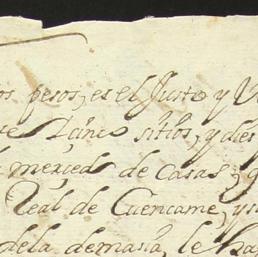 os pesos, es el Justo y V
se Sinco sitios, y dies
merced de Casas, y
Real de Cuencame, y s
dela demasia, le ha